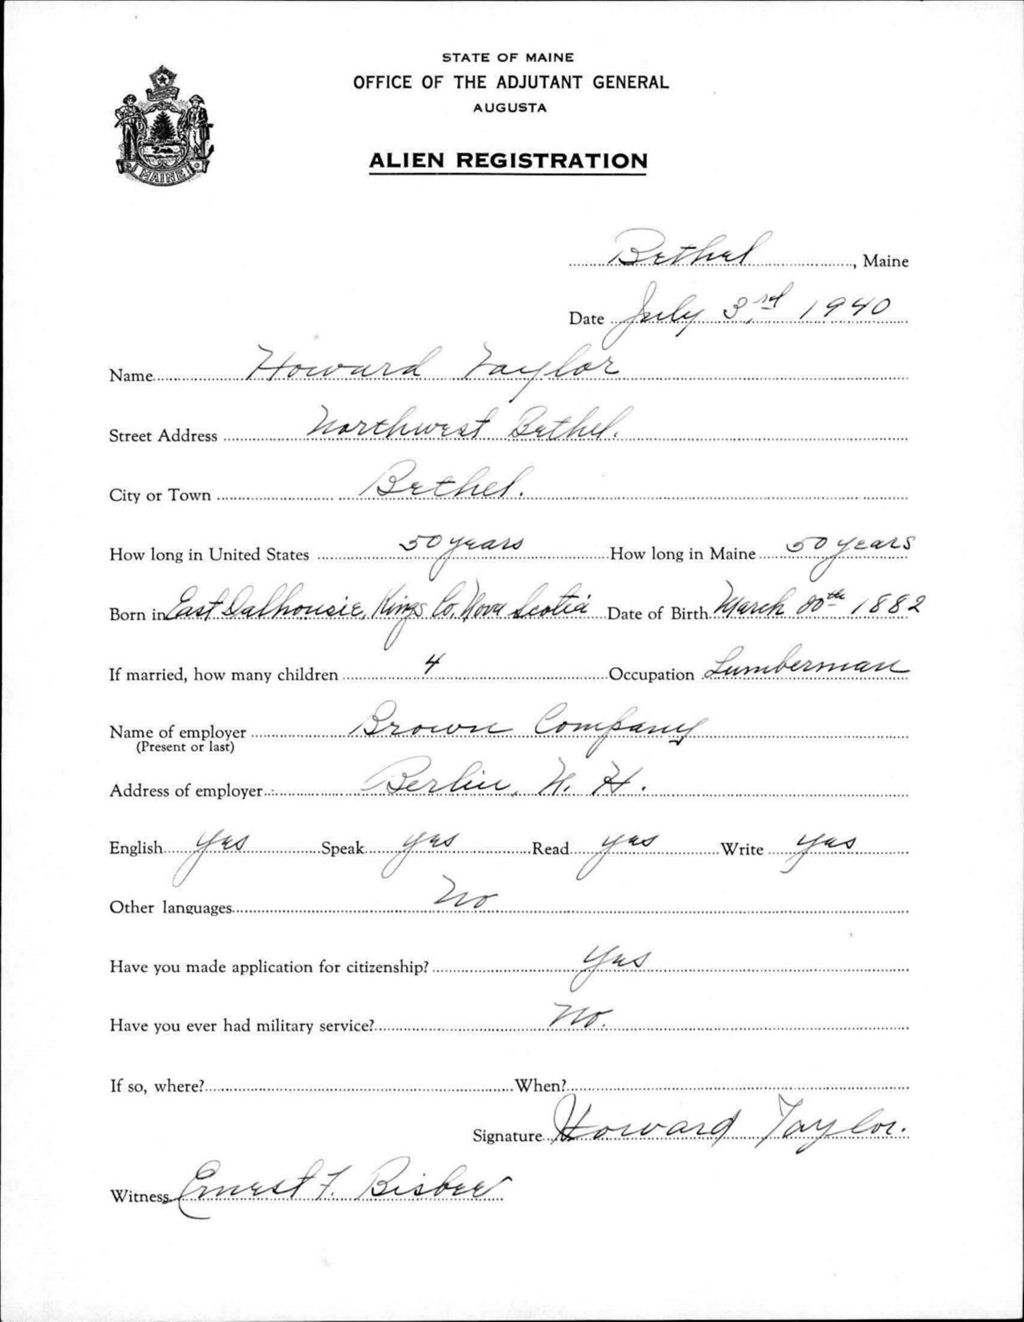 STATE OF MAINE
OFFICE OF THE ADJUTANT GENERAL
AUGUSTA
MAINE
ALIEN REGISTRATION
Bethel, Maine
Date July 3rd 1940
Name Howard Taylor
Street Address Northwest Bethel.
City or Town Bethel.
How long in United States 50 years How long in Maine 50 years
Born in East Dalhousie, Kings Co. Nova Scotia Date of Birth March 1882
If married, how many children 4 Occupation Lumberman
Name of employer Brown Company
(Present or last)
Address of employer Berlin, N. H.
English yes Speak yes Read yes Write yes
Other languages No
Have you made application for citizenship? Yes
Have you ever had military service? No.
If so, where? When?
Signature Howard Taylor.
Witness Ernest F. Bisbee